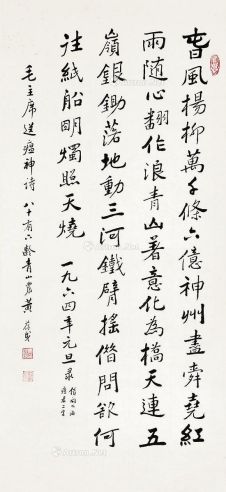 春風楊柳萬千條六億神州盡舜堯紅
雨隨心翻作浪青山着意化為橋天連五
嶺銀鋤落地動三河鐵臂搖借問欲何
往紙船明燭照天燒 一九六四年元旦录
毛主席送瘟神诗 八十有六齡青山農黃葆戉